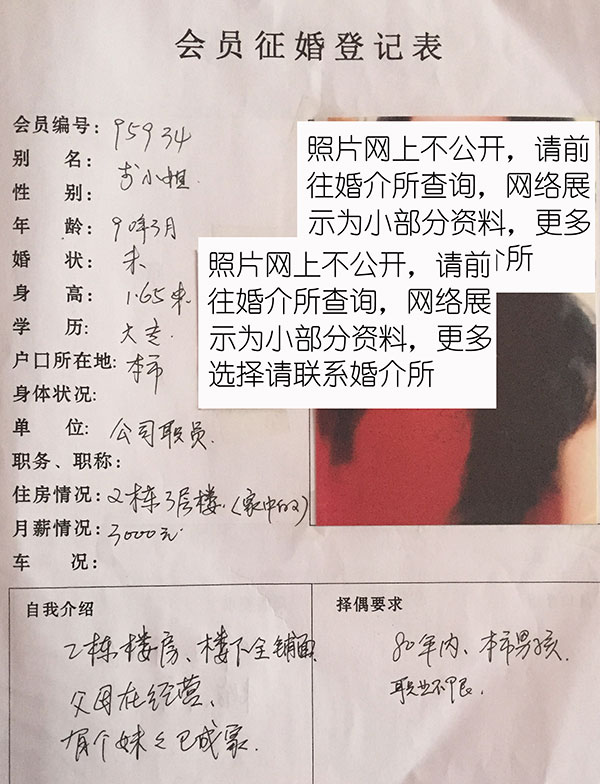 会员征婚登记表
会员编号: 95934
别 名: 小姐
性 别:
年 龄: 90年3月
婚 状: 未
身 高: 1.65米
学 历: 大专
户口所在地: 本市
身体状况:
单 位: 公司职员
职务、职称:
住房情况: 2栋3层楼(家中的)
月薪情况: 3000元
车 况:
照片网上不公开，请前
往婚介所查询，网络展
示为小部分资料，更多
所
照片网上不公开，请前
往婚介所查询，网络展
示为小部分资料，更多
选择请联系婚介所
自我介绍
2栋楼房、楼下全铺面
父母在经营、
有个妹々已成家.
择偶要求
80年内、本市男孩.
职业不限.